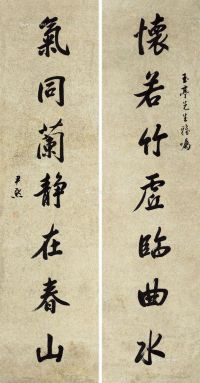 懷若竹虛臨曲水
玉亭先生雅囑
氣同蘭靜在春山